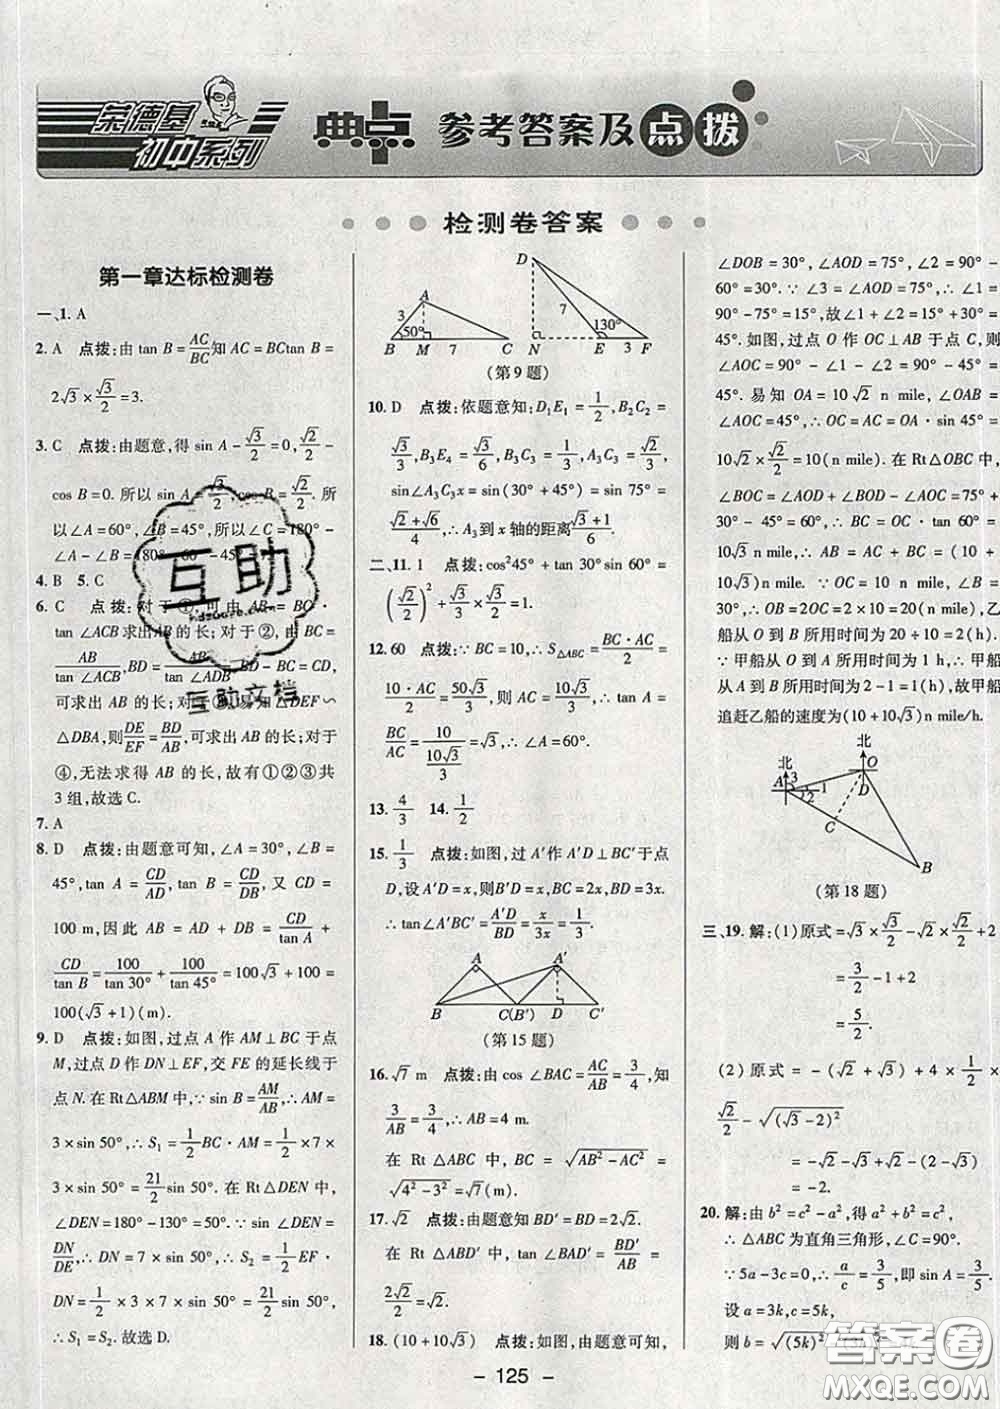 荣德基
初中系列
典点 参考答案及点拨
检测卷答案
第一章达标检测卷
一、1. A
2. A 点拨:由 tan B = AC/BC 知 AC = BCtan B =
2√3 × √3/2 = 3.
3. C 点拨:由题意,得 sin A − √3/2 = 0, √2/2 −
cos B = 0. 所以 sin A = √3/2, cos B = √2/2. 所
以∠A = 60°, ∠B = 45°, 所以∠C = 180° −
∠A − ∠B = 180° − 60° − 45° = 75°.
4. B 5. C
6. C 点拨:对于①,可由 AB = BC·
tan ∠ACB 求出 AB 的长;对于②,由 BC =
AB/tan ∠ACB, BD = AB/
可求出 AB 的长;对于③,易知 △DEF ∽
△DBA, 则 DE/EF = BD/AB, 可求出 AB 的长;对于
④,无法求得 AB 的长,故有①②③共
3 组,故选 C.
7. A
8. D 点拨:由题意可知, ∠A = 30°, ∠B =
45°, tan A = CD/AD, tan B = CD/DB, 又 CD =
100 m, 因此 AB = AD + DB = CD/tan A +
CD/tan B = 100/tan 30° + 100/tan 45° = 100√3 + 100 =
100(√3 + 1)(m).
9. D 点拨:如图,过点 A 作 AM ⊥ BC 于点
M, 过点 D 作 DN ⊥ EF, 交 FE 的延长线于
点 N. 在 Rt△ABM 中, ∵ sin B = AM/AB, ∴ AM =
3 × sin 50°, ∴ S₁ = 1/2 BC · AM = 1/2 × 7 ×
3 × sin 50° = 21/2 sin 50°. 在 Rt△DEN 中,
∠DEN = 180° − 130° = 50°. ∵ sin ∠DEN =
DN/DE, ∴ DN = 7 × sin 50°, ∴ S₂ = 1/2 EF ·
DN = 1/2 × 3 × 7 × sin 50° = 21/2 sin 50°,
∴ S₁ = S₂. 故选 D.
A 3 50° B M 7 C
D 7 130° N E 3 F
(第 9 题)
10. D 点拨:依题意知: D₁E₁ = 1/2, B₂C₂ =
√3/3, B₃E₄ = √3/6, B₃C₃ = 1/3, A₃C₃ = 1/3,
sin∠A₃C₃x = sin(30° + 45°) =
(√2 + √6)/4, ∴ A₃ 到 x 轴的距离 (√3 + 1)/6.
二、11. 1 点拨: cos²45° + tan 30° sin 60° =
(√2/2)² + √3/3 × √3/2 = 1.
12. 60 点拨: ∵ BC = 10, ∴ S△ABC = BC · AC/2 =
10 · AC/2 = 50√3/3, 则 AC = 10√3/3, ∴ tan A =
BC/AC = 10/(10√3/3) = √3, ∴ ∠A = 60°.
13. 4/3 14. 1/2
15. 1/3 点拨:如图,过 A′作 A′D ⊥ BC′于点
D, 设 A′D = x, 则 B′D = x, BC = 2x, BD = 3x.
∴ tan∠A′BC′ = A′D/BD = x/3x = 1/3.
A A′ B C(B′) D C′
(第 15 题)
16. √7 m 点拨:由 cos ∠BAC = AC/AB = 3/4, 知
3/AB = 3/4, ∴ AB = 4 m.
在 Rt △ABC 中, BC = √(AB² − AC²) =
√(4² − 3²) = √7(m).
17. √2 点拨:由题意知 BD′ = BD = 2√2.
在 Rt △ABD′ 中, tan ∠BAD′ = BD′/AB =
2√2/2 = √2.
18. (10 + 10√3) 点拨:如图,由题意可知,
∠DOB = 30°, ∠AOD = 75°, ∠2 = 90° −
60° = 30°. ∵ ∠3 = ∠AOD = 75°, ∴ ∠1 =
90° − 75° = 15°, 故∠1 + ∠2 = 15° + 30° =
45°. 如图,过点 O 作 OC ⊥ AB 于点 C, 则
∠AOC = 90° − ∠1 − ∠2 = 90° − 45° =
45°. 易知 OA = 10√2 n mile, ∠OAB =
∠AOC = 45°, ∴ OC = AC = OA · sin 45° =
10√2 × √2/2 = 10(n mile). 在 Rt△OBC 中,
∠BOC = ∠AOB − ∠AOC = 75° +
30° − 45° = 60°, ∴ BC = OC · tan 60° =
10√3 n mile, ∴ AB = AC + BC = (10 +
10√3) n mile. ∵ 
OB = 2OC = 2 × 10 = 20(n mile), 乙
船从 O 到 B 所用时间为 20 ÷ 10 = 2(h).
∵ 甲船从 A 到 O 所用时间为 1 h, ∴ 甲船
从 A 到 B 所用时间为 2 − 1 = 1(h), 故甲船
追赶乙船的速度为(10 + 10√3)n mile/h.
北 北 A 3 1 2 O D C B
(第 18 题)
三、19. 解: (1) 原式 = √3 × √3/2 − √2 × √2/2 + 2
= 3/2 − 1 + 2
= 5/2.
(2) 原式 = −(√2 + √3) + 4 × 1/2 ×
√2/2 − √((√3 − 2)²)
= −√2 − √3 + √2 − (2 − √3)
= −2.
20. 解:由 b² = c² − a², 得 a² + b² = c²,
∴ △ABC 为直角三角形, ∠C = 90°.
∵ 5a − 3c = 0, ∴ a/c = 3/5, 即 sin A = 3/5.
设 a = 3k, c = 5k,
则 b = √((5k)²
− 125 −
互助
互助文档
答案圈
MXQE.COM